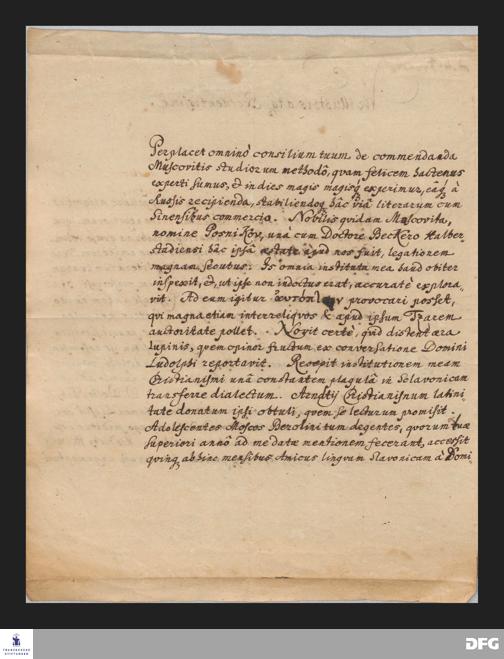 Perplacet omninò consilium tuum de commendanda
Muscovitis studiorum methodô, qvam felicem hactenus
experti sumus, & indies magis magisq; experimur, eâq; à
Russis recipienda, stabiliendoq; hâc viâ literarum cum
Sinensibus commercio. Nobilis qvidam Muscovita,
nomine Posnikov, unà cum Doctore Beckero Halber
stadiensi hâc ipsâ æstate apud nos fuit, legationem
magnam secutus. Is omnia instituta mea haud obiter
inspexit, &, ut ipse non indoctus erat, accuratè explora-
vit. Ad eum igitur provocari posset,
qvi magna etiam inter reliqvos & apud ipsum Tzarem
autoritate pollet. Novit certè, qvid distent æra
lupinis, qvem opinor fructum ex conversatione Domini
Ludolphi reportavit. Recepit institutionem meam
Christianismi unâ constantem plagulâ in Sclavonicam
transferre dialectum. Arndtij Christianismum latini
tate donatum ipsi obtuli, qvem se lecturum promisit.
Adolescentes Moscos Berolini tum degentes, qvorum tuæ
superiori annô ad me datæ mentionem fecerant, accessit
qvinq; abhinc mensibus Amicus lingvam Slavonicam à Domi
FRANCKESCHE
STIFTUNGEN
DFG